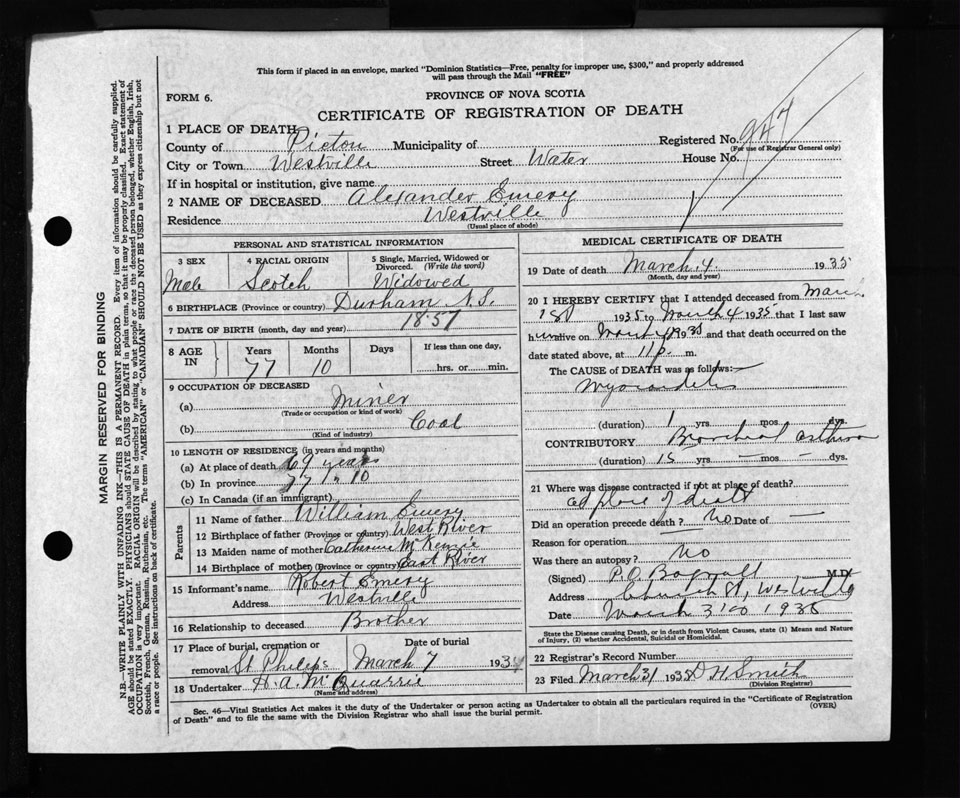 This form if placed in an envelope, marked "Dominion Statistics—Free, penalty for improper use, $300," and properly addressed
will pass through the Mail "FREE"
FORM 6.
PROVINCE OF NOVA SCOTIA
CERTIFICATE OF REGISTRATION OF DEATH
1 PLACE OF DEATH
County of Pictou Municipality of Registered No. 947
(For use of Registrar General only)
City or Town Westville Street Water House No.
If in hospital or institution, give name
2 NAME OF DECEASED Alexander Emery
Residence Westville
(Usual place of abode)
PERSONAL AND STATISTICAL INFORMATION
3 SEX 4 RACIAL ORIGIN 5 Single, Married, Widowed or Divorced. (Write the word)
Male Scotch Widowed
6 BIRTHPLACE (Province or country) Durham N.S.
7 DATE OF BIRTH (month, day and year) 1857
8 AGE IN Years Months Days If less than one day,
77 10 hrs. or min.
9 OCCUPATION OF DECEASED
(a) Miner
(Trade or occupation or kind of work)
(b) Coal
(Kind of industry)
10 LENGTH OF RESIDENCE (in years and months)
(a) At place of death 69 years
(b) In province 77 10
(c) In Canada (if an immigrant)
Parents
11 Name of father William Emery
12 Birthplace of father (Province or country) West River
13 Maiden name of mother Catherine McKenzie
14 Birthplace of mother (Province or country) East River
15 Informant's name Robert Emery
Address Westville
16 Relationship to deceased Brother
17 Place of burial, cremation or Date of burial
removal St Philips March 7 193
18 Undertaker H. A. McQuarrie
(Name and address)
MEDICAL CERTIFICATE OF DEATH
19 Date of death March 4 1935
(Month, day and year)
20 I HEREBY CERTIFY that I attended deceased from March
1st 1935 to March 4 1935 that I last saw
him alive on March 4 1935 and that death occurred on the
date stated above, at 11 p. m.
The CAUSE of DEATH was as follows:—
Myocarditis
(duration) 1 yrs. mos dys.
CONTRIBUTORY Bronchial asthma
(duration) 15 yrs. — mos — dys.
21 Where was disease contracted if not at place of death?
at place of death
Did an operation precede death? no Date of —
Reason for operation —
Was there an autopsy? no
(Signed) M.D.
Address Church St, Westville
Date March
State the Disease causing Death, or in death from Violent Causes, state (1) Means and Nature
of Injury, (2) whether Accidental, Suicidal or Homicidal.
22 Registrar's Record Number
23 Filed March 31 193 D H Smith
(Division Registrar)
Sec. 46—Vital Statistics Act makes it the duty of the Undertaker or person acting as Undertaker to obtain all the particulars required in the "Certificate of Registration
of Death" and to file the same with the Division Registrar who shall issue the burial permit.
(OVER)
MARGIN RESERVED FOR BINDING
N.B.—WRITE PLAINLY WITH UNFADING INK—THIS IS A PERMANENT RECORD. Every item of information should be carefully supplied.
AGE should be stated EXACTLY. PHYSICIANS should STATE CAUSE OF DEATH in plain terms, so that it may be properly classified. Exact statement of
OCCUPATION is very important. RACIAL ORIGIN will be described by stating to what people or race the deceased person belonged, whether English, Irish,
Scottish, French, German, Russian, Ruthenian, etc. The terms "AMERICAN" or "CANADIAN" SHOULD NOT BE USED as they express citizenship but not
a race or people. See instructions on back of certificate.